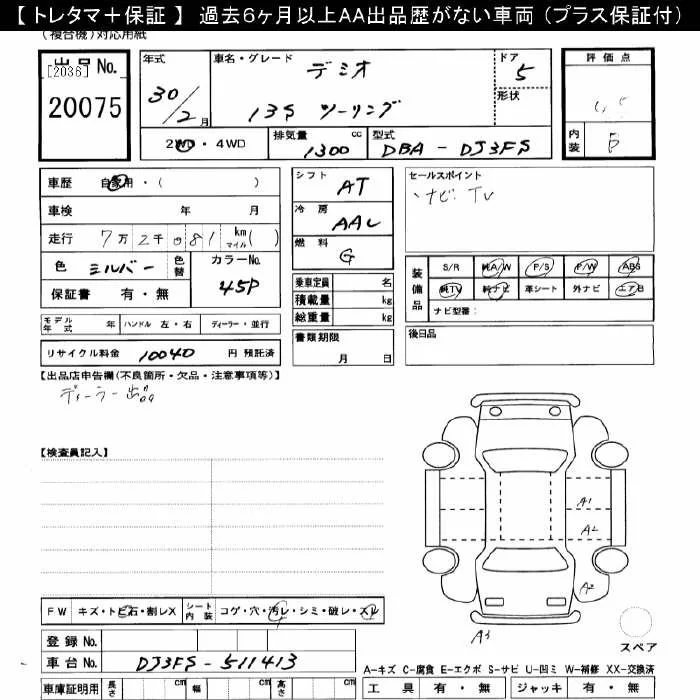 【 トレタマ＋保証 】 過去6ヶ月以上AA出品歴がない車両（プラス保証付）
（複合機）対応用紙
出品 No.
[2036]
20075
年式
30/2月
車名・グレード
デミオ
13S ツーリング
ドア
5
形状
評価点
内装
B
2WD・4WD
排気量 1300 cc
型式 DBA - DJ3FS
車歴 自家用・（ ）
車検 年 月
走行 7万2千081 km マイル（ ）
色 シルバー 色替
カラーNo. 45P
保証書 有・無
シフト AT
冷房 AAC
燃料 G
乗車定員 名
積載量 kg
総重量 kg
セールスポイント
ナビ TV
装備品
S/R 純A/W P/S P/W ABS
純TV 純ナビ 革シート 外ナビ エアB
ナビ型番：
モデル年式 年 ハンドル 左・右 ディーラー・並行
リサイクル料金 10040 円 預託済
書類期限
月 日
後日品
【出品店申告欄(不良箇所・欠品・注意事項等)】
ディーラー出品
【検査員記入】
A1
A2
A2
A3
FW キズ・トビ石・割レX
シート内装 コゲ・穴・汚レ・シミ・破レ・スレ
登録 No.
車台 No. DJ3FS - 511413
車庫証明用 長さ cm 幅 cm 高さ cm
スペア
A-キズ C-腐食 E-エクボ S-サビ U-凹ミ W-補修 XX-交換済
工具 有・無 ジャッキ 有・無